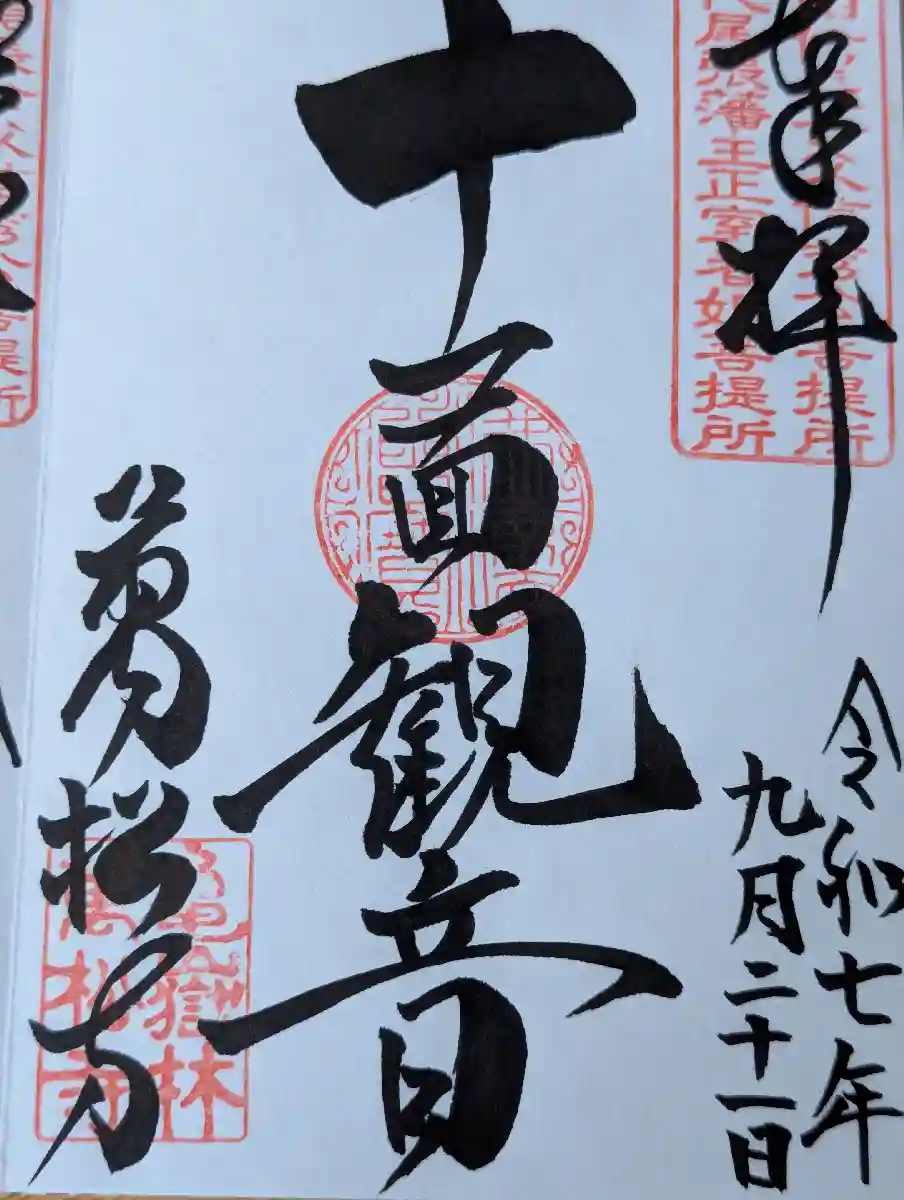 奉拝
令和七年
九月二十一日
十一面観音
萬松寺
代尾張藩主正室春姫菩提所
菩提所
亀嶽林
萬松寺